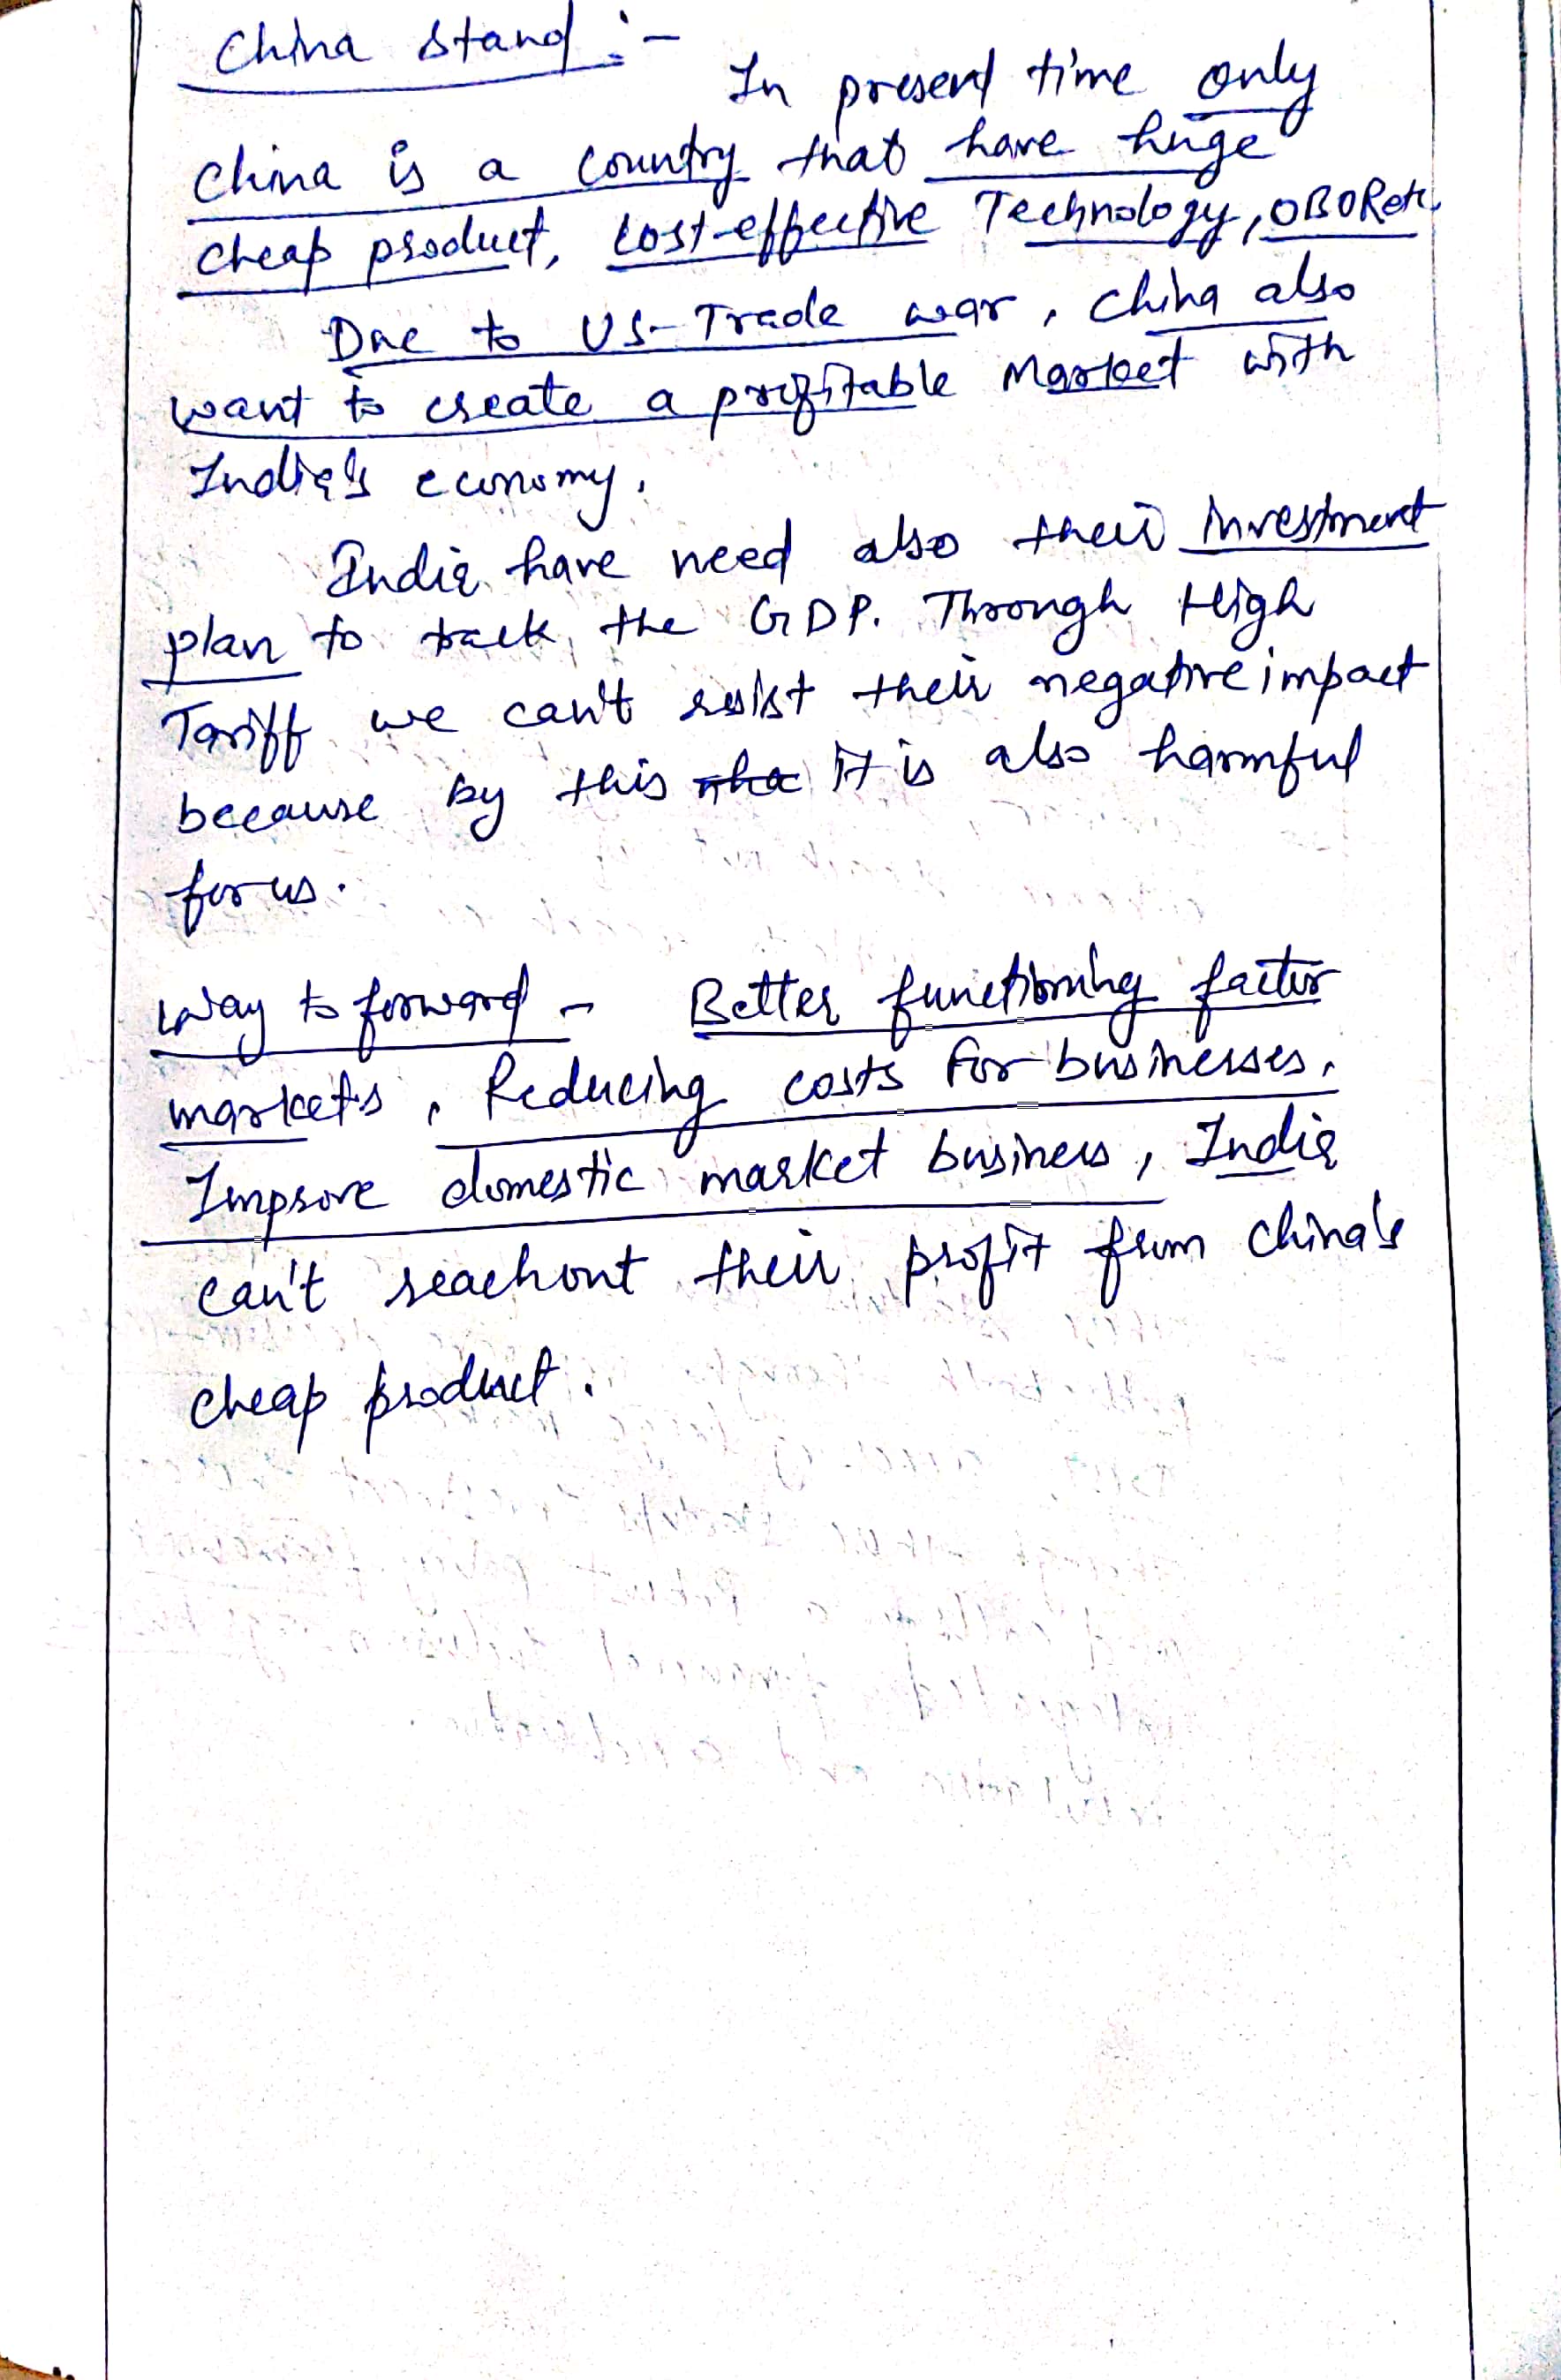 China stand :-
In present time only
China is a country that have huge
cheap product, cost-effective Technology, OBOR etc.
Due to US-Trade war, China also
want to create a profitable Market with
India's economy.
India have need also their investment
plan to back the GDP. Through High
Tariff we can't resist their negative impact
because by this it is also harmful
for us.
Way to forward - Better functioning factor
markets, Reducing costs for businesses,
Improve domestic market business, India
can't reachout their profit from China's
cheap product.